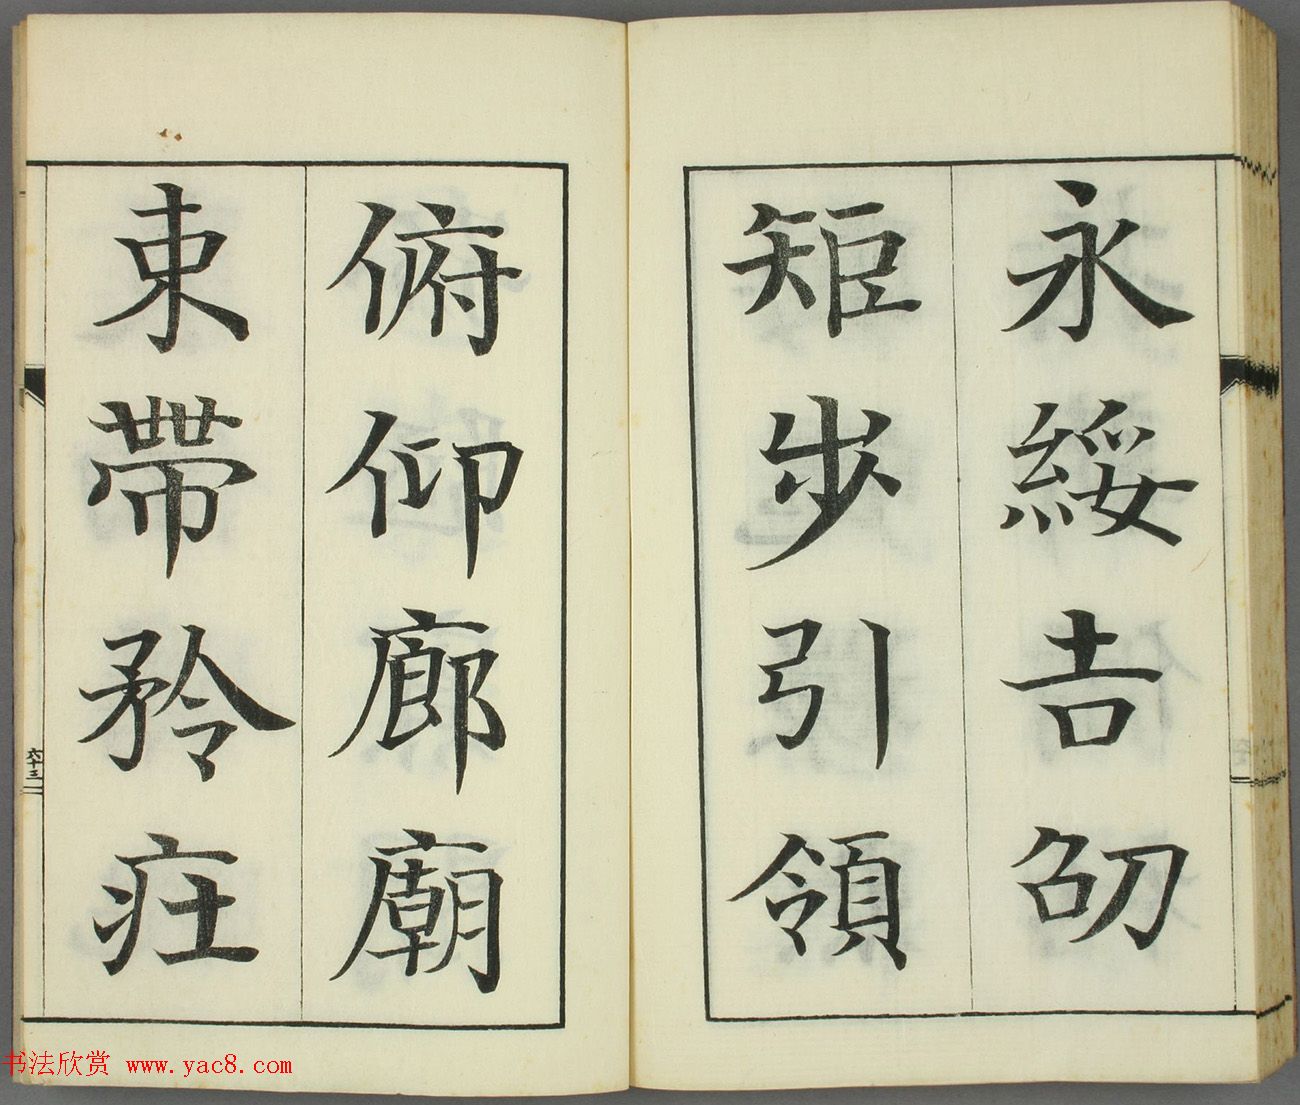 永綏吉劭
矩步引領
俯仰廊廟
束帶矜莊
六十三
书法欣赏 www.yac8.com